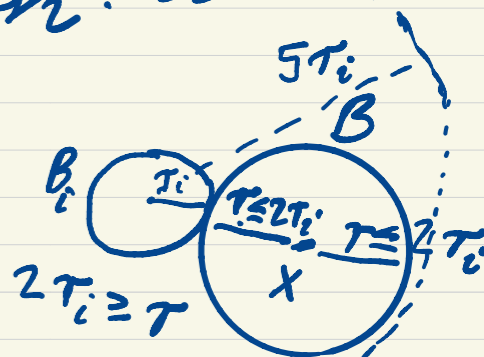 5r_i
B
B_i
r_i
r ≤ 2r_i
r ≤ 2r_i
x
2r_i ≥ r